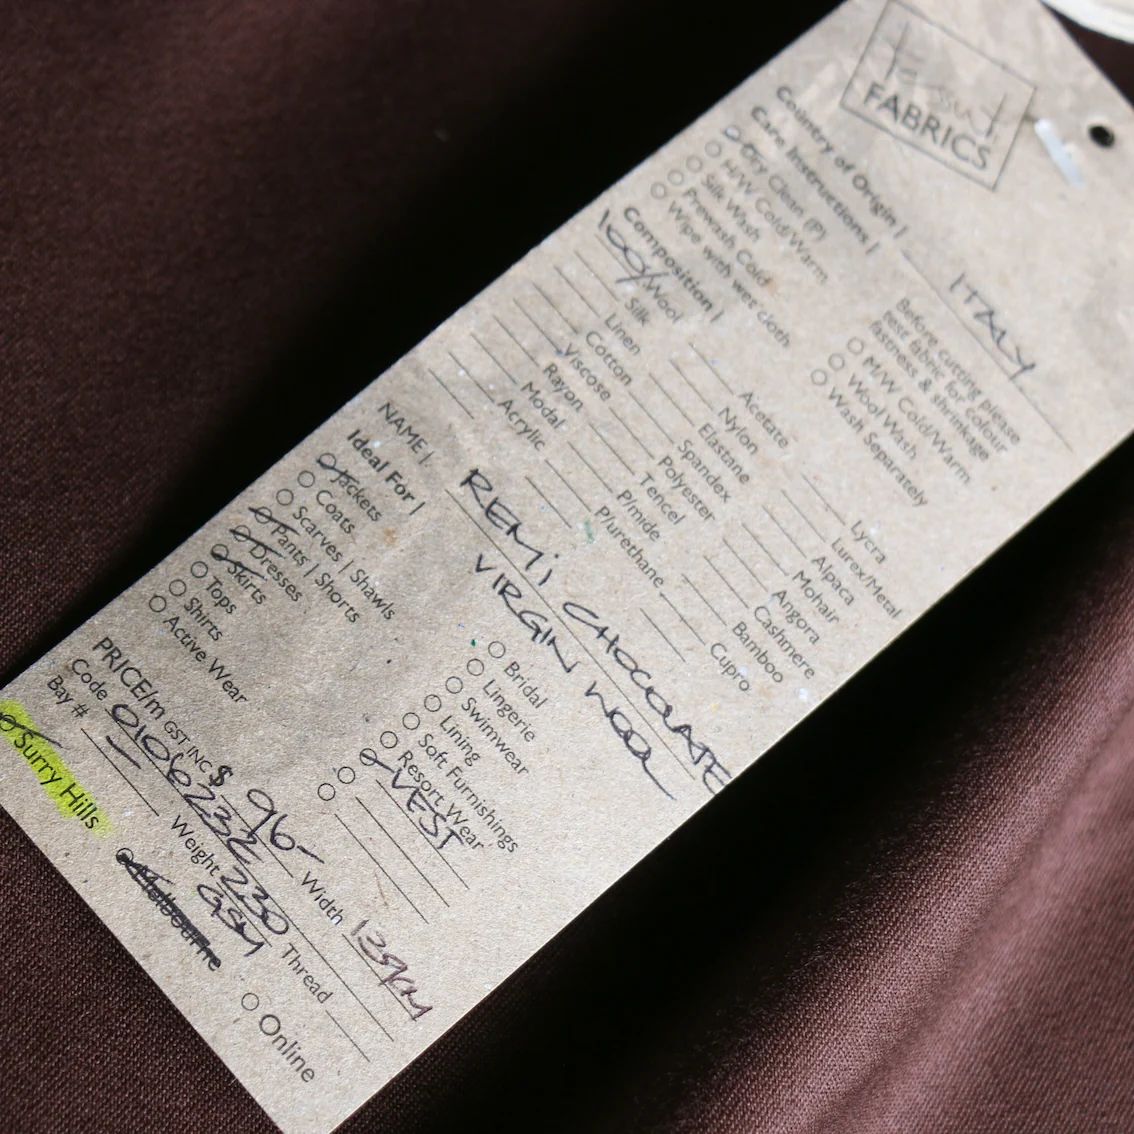 FABRICS
Country of Origin | ITALY
Care Instructions |
Dry Clean (P)
H/W Cold/Warm
Silk Wash
Prewash Cold
Wipe with wet cloth
Before cutting please
test fabric for colour
fastness & shrinkage
M/W Cold/Warm
Wool Wash
Wash Separately
Composition |
100% Wool
Silk
Linen
Cotton
Viscose
Rayon
Modal
Acrylic
Acetate
Nylon
Elastane
Spandex
Polyester
Tencel
P/mide
P/urethane
Lycra
Lurex/Metal
Alpaca
Mohair
Angora
Cashmere
Bamboo
Cupro
NAME | REMI CHOCOLATE
VIRGIN WOOL
Ideal For |
Jackets
Coats
Scarves | Shawls
Pants | Shorts
Dresses
Skirts
Tops
Shirts
Active Wear
Bridal
Lingerie
Swimwear
Lining
Soft Furnishings
Resort Wear
VEST
PRICE/m GST INC $ 96- Width 135cm
Code 0106232 Weight 230 GSM Thread
Bay #
Surry Hills
Melbourne
Online